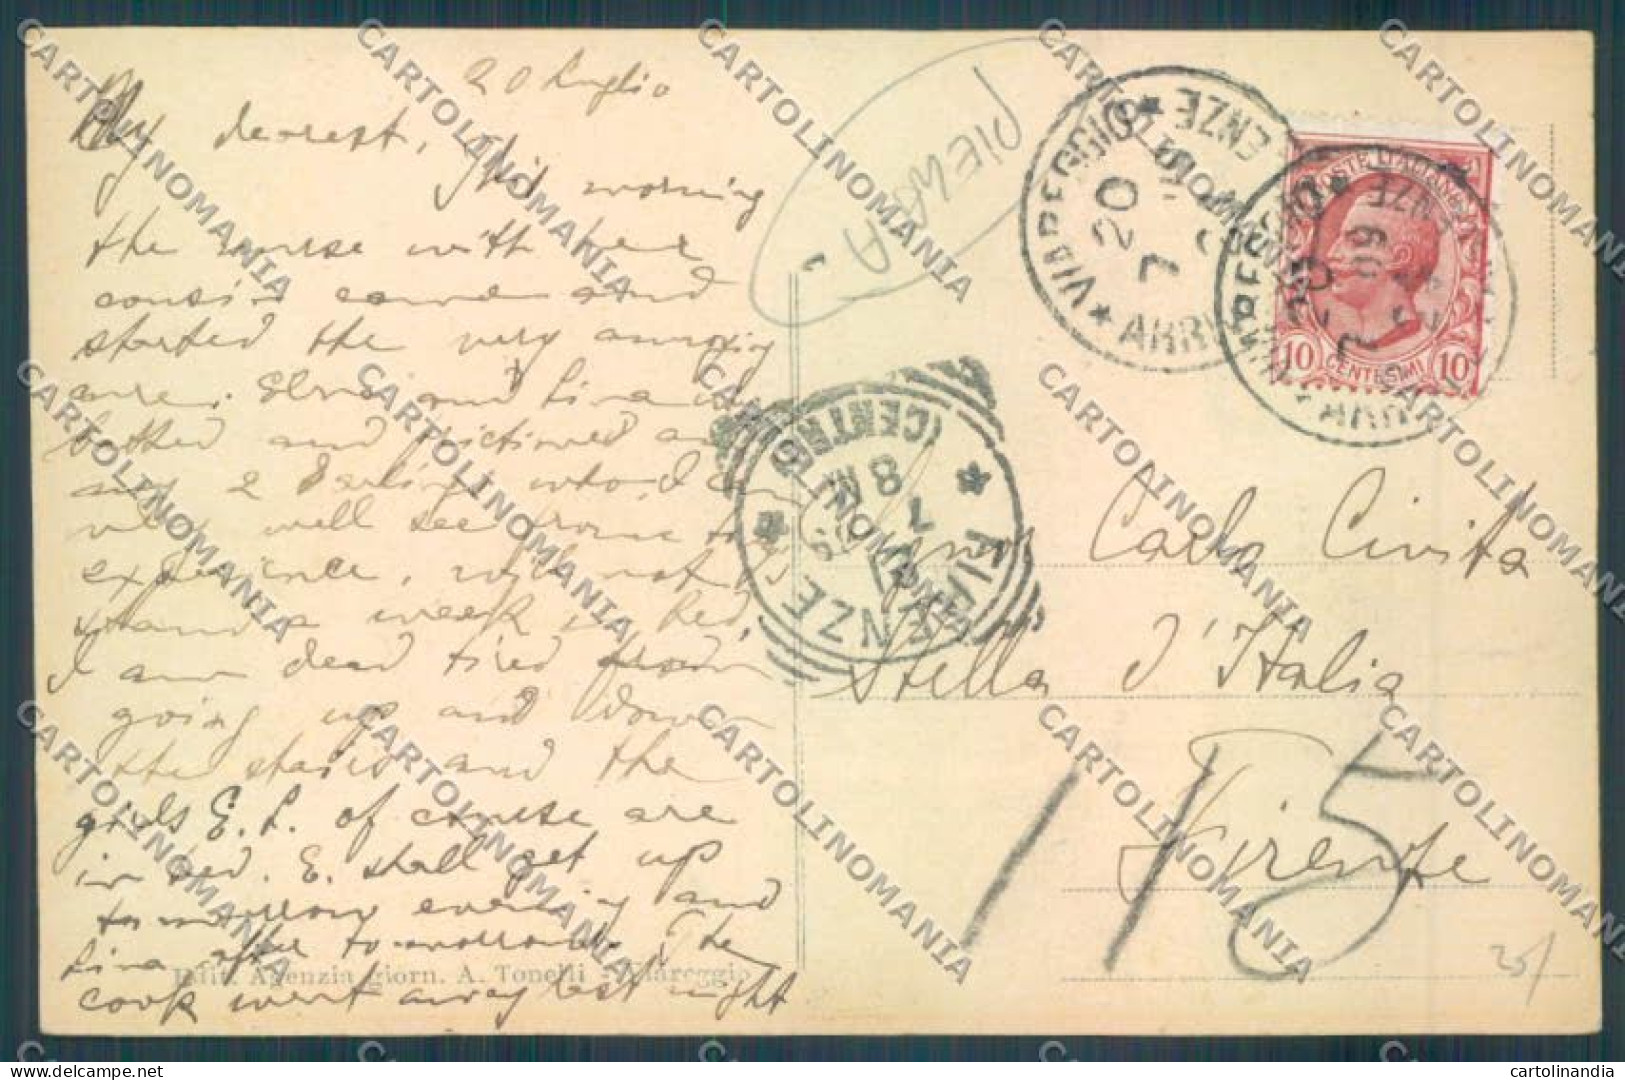 20 Luglio
My dearest, This morning
the nurse with her
cousin came and
started the very annoying
cure. Elvse and Lina
bathed and frictioned
any 2 Darling who, I can
very well see from
experience, will not
stand a week in bed.
I am dead tired from
going up and down
the stairs and the
girls E. L. of course are
in bed. E. shall get up
to-morrow evening and
Lina after to-morrow. The
cook went away last night
Edit. Agenzia giorn. A. Tonelli - Viareggio
PIENA
VIAREGGIO
20 7
ARRIVI
POSTE ITALIANE
10 CENTESIMI 10
FIRENZE
CENTRO
8 M
21 7 09
Carla Civita
Stella d'Italia
Firenze
115
25/
CARTOLINOMANIA
cartolinandia